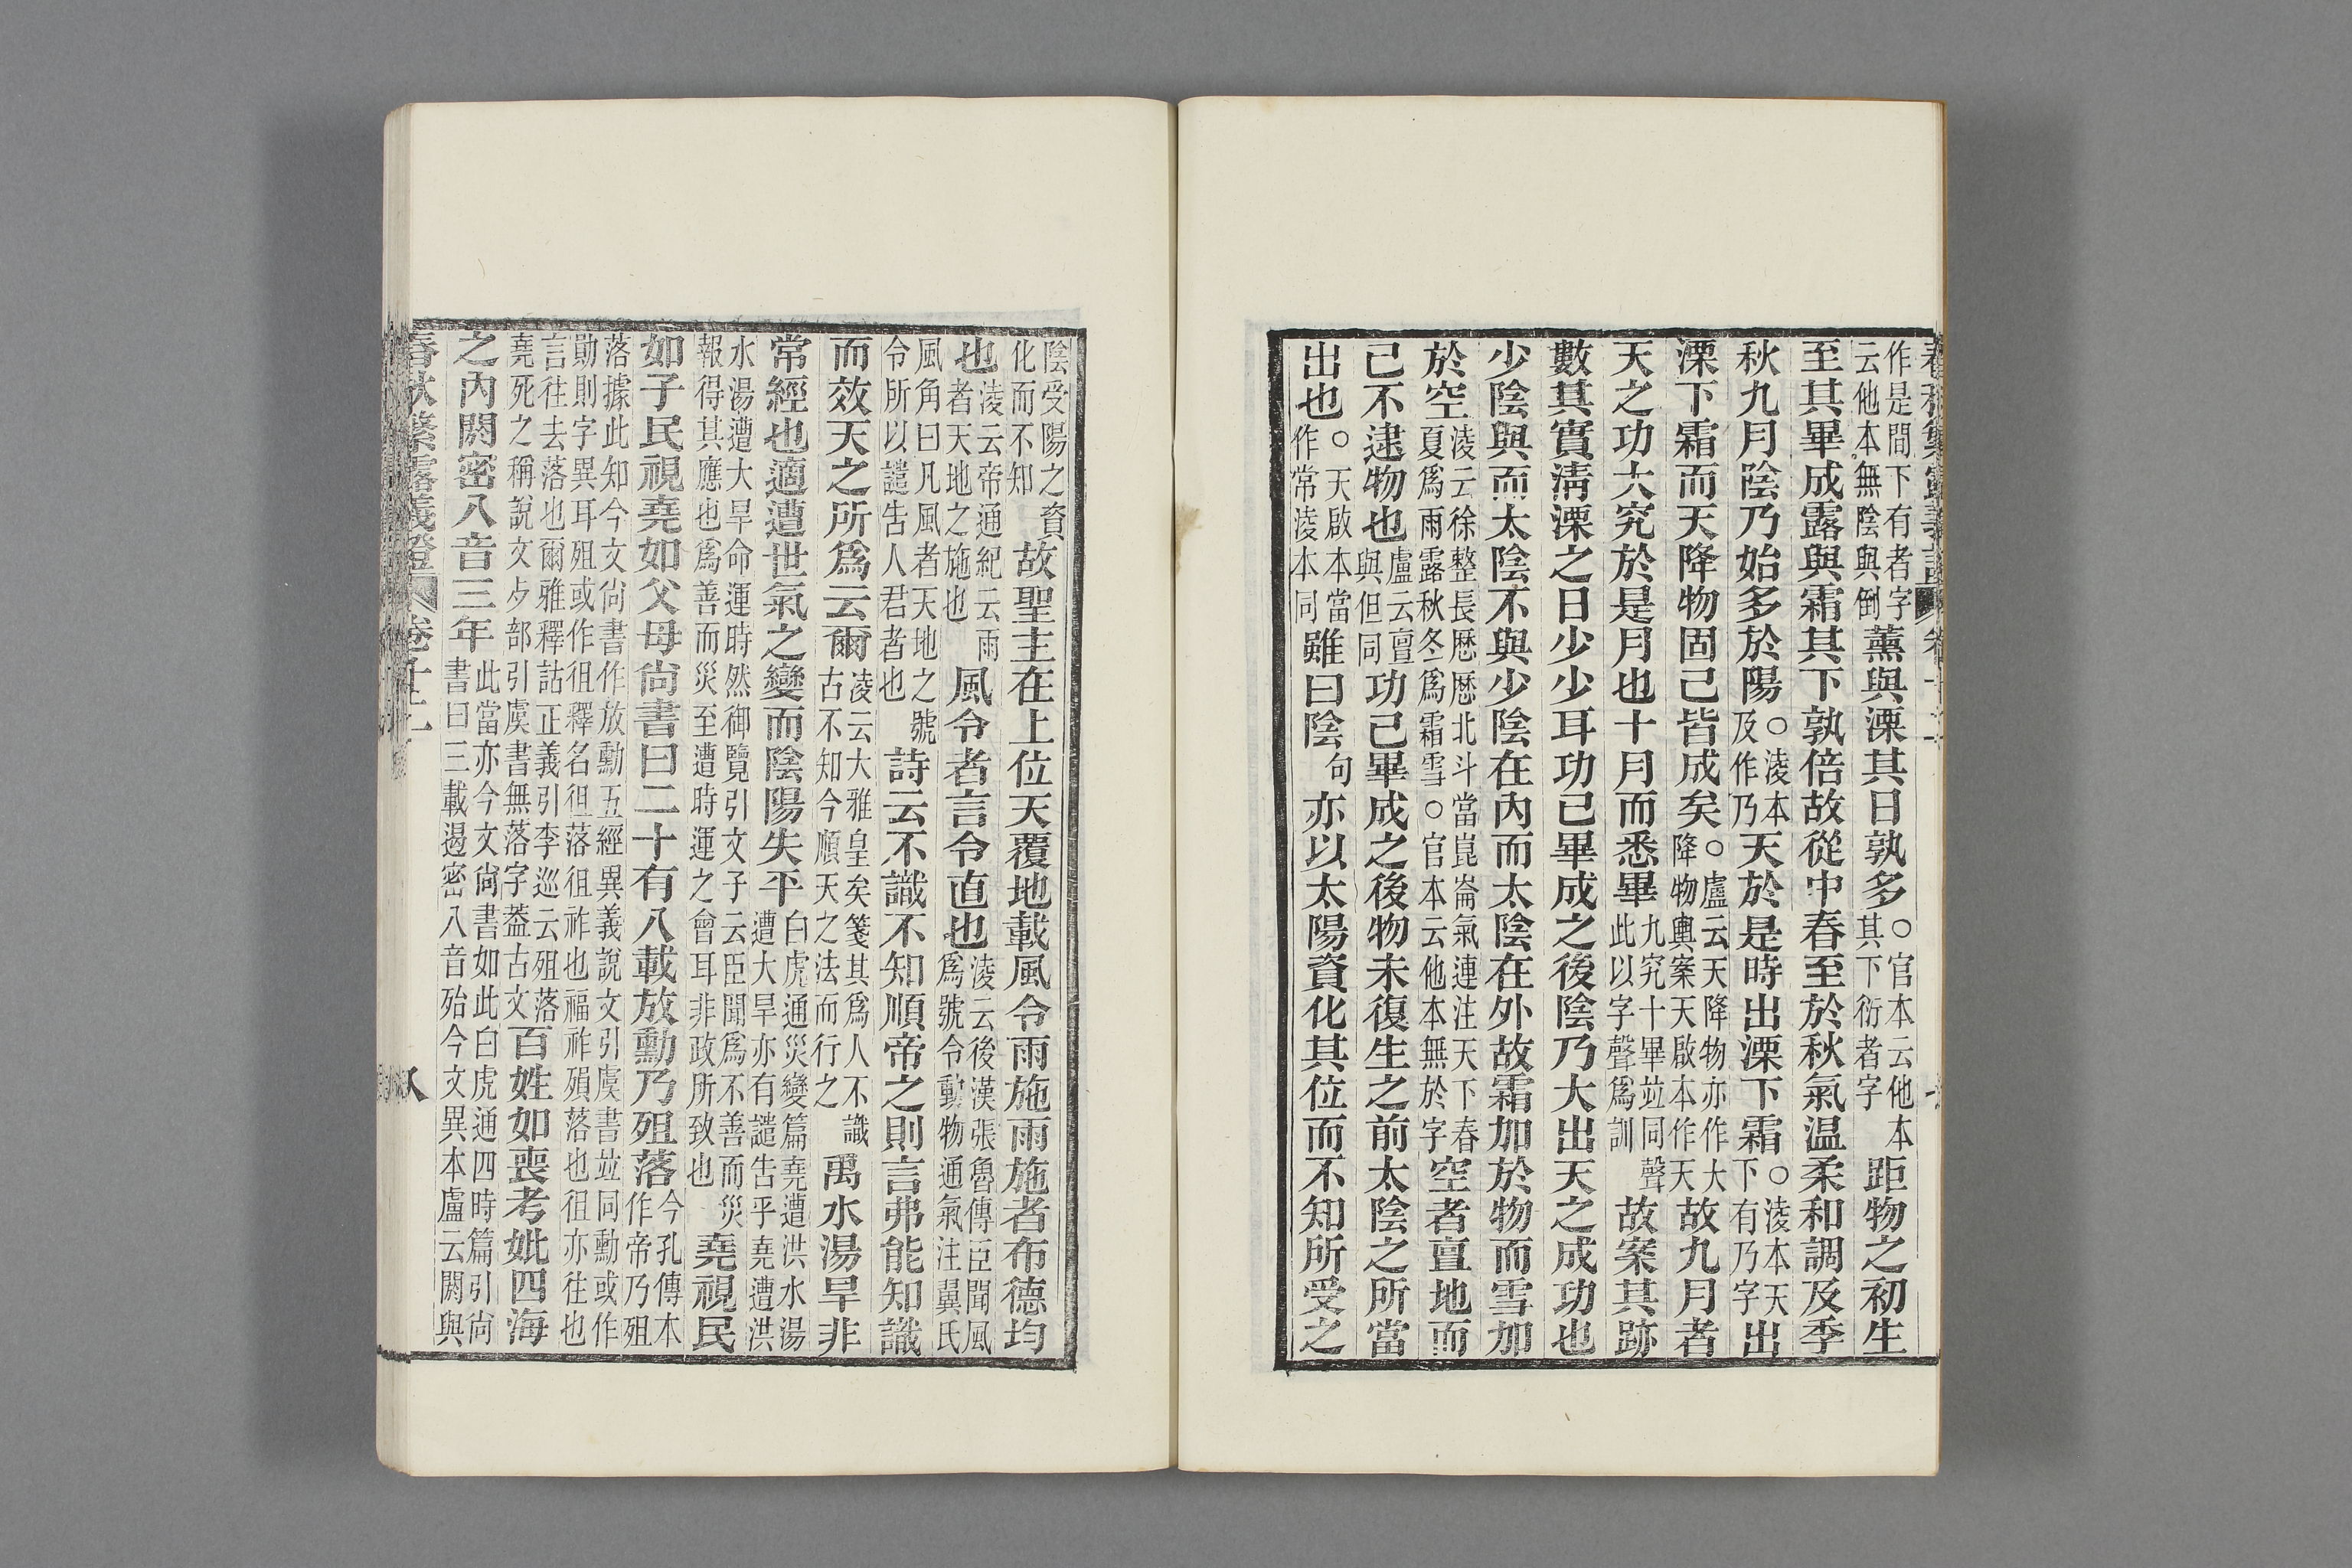 作是間下有者字
云他本無陰與倒薰與溧其日孰多○官本云他本
其下衍者字距物之初生
至其畢成露與霜其下孰倍故從中春至於秋氣温柔和調及季
秋九月陰乃始多於陽○淩本
及作乃天於是時出溧下霜○淩本天出
下有乃字出
溧下霜而天降物固已皆成矣○盧云天降物亦作大
降物輿案天啟本作天故九月者
天之功大究於是月也十月而悉畢九究十畢竝同聲
此以字聲爲訓故案其跡
數其實淸溧之日少少耳功已畢成之後陰乃大出天之成功也
少陰與而太陰不與少陰在內而太陰在外故霜加於物而雪加
於空淩云徐整長歷歷北斗當崑崙氣連注天下春
夏爲雨露秋冬爲霜雪○官本云他本無於字空者亶地而
已不逮物也盧云亶
與但同功已畢成之後物未復生之前太陰之所當
出也○天啟本當
作常淩本同雖曰陰句亦以太陽資化其位而不知所受之
陰受陽之資
化而不知故聖主在上位天覆地載風令雨施雨施者布德均
也淩云帝通紀云雨
者天地之施也風令者言令直也淩云後漢張魯傳臣聞風
爲號令動物通氣注翼氏
風角曰凡風者天地之號
令所以譴吿人君者也詩云不識不知順帝之則言弗能知識
而效天之所爲云爾淩云大雅皇矣箋其爲人不識
古不知今順天之法而行之禹水湯旱非
常經也適遭世氣之變而陰陽失平白虎通災變篇堯遭洪水湯
遭大旱亦有譴吿乎堯遭洪
水湯遭大旱命運時然御覽引文子云臣聞爲不善而災
報得其應也爲善而災至遭時運之會耳非政所致也堯視民
如子民視堯如父母尙書曰二十有八載放勳乃殂落今孔傳本
作帝乃殂
落據此知今文尙書作放勳五經異義說文引虞書竝同勳或作
勛則字異耳殂或作徂釋名徂落徂祚也福祚殞落也徂亦往也
言往去落也爾雅釋詁正義引李巡云殂落
堯死之稱說文歺部引虞書無落字蓋古文百姓如喪考妣四海
之內閼密八音三年此當亦今文尙書如此白虎通四時篇引尙
書曰三載遏密八音殆今文異本盧云閼與
春秋繁露義證 卷十二 八